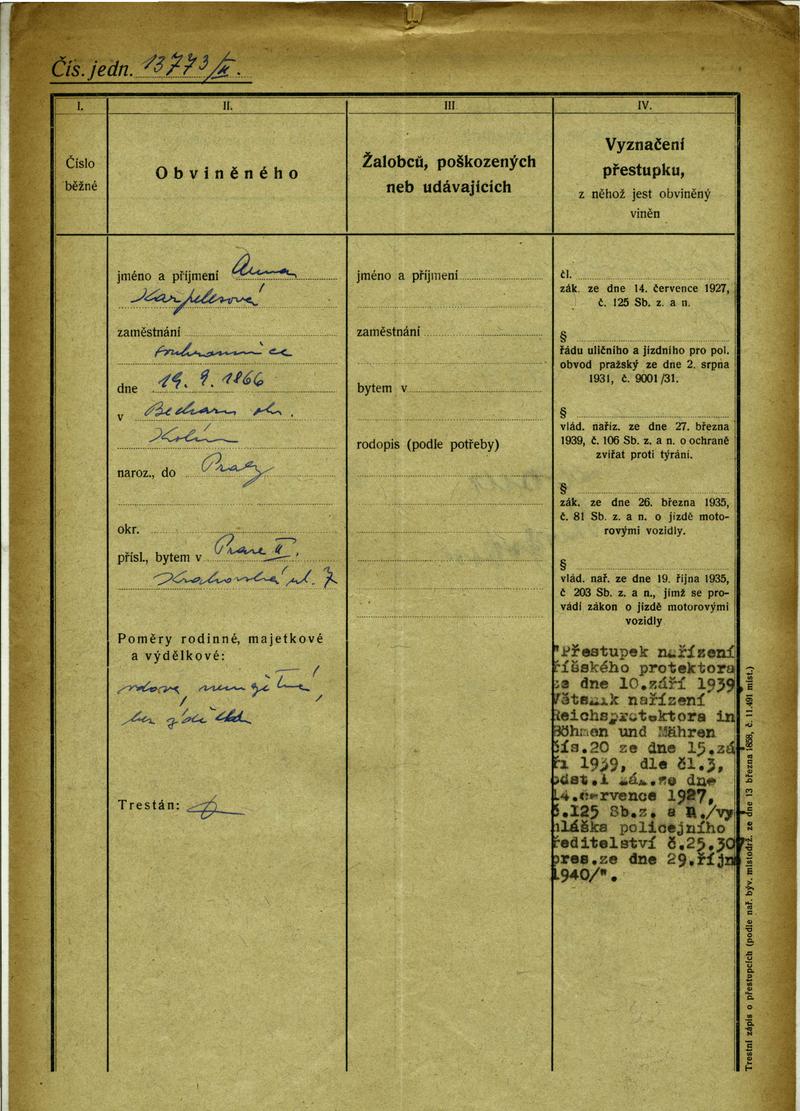 Čís. jedn. 13773/II.
I.
II.
III
IV.
Číslo
běžné
Obviněného
Žalobců, poškozených
neb udávajících
Vyznačení
přestupku,
z něhož jest obviněný
viněn
jméno a příjmení Anna
Karpelesová
zaměstnání
soukromnice
dne 19. 9. 1866
v Bečváry okr.
Kolín
naroz., do Prahy
okr.
přísl., bytem v Praze II.
Krakovská ul. 7
Poměry rodinné, majetkové
a výdělkové:
vdova, nemajetná,
bez
Trestán:
jméno a příjmení
zaměstnání
bytem v
rodopis (podle potřeby)
čl.
zák. ze dne 14. července 1927,
č. 125 Sb. z. a n.
§
řádu uličního a jízdního pro pol.
obvod pražský ze dne 2. srpna
1931, č. 9001/31.
§
vlád. naříz. ze dne 27. března
1939, č. 106 Sb. z. a n. o ochraně
zvířat proti týrání.
§
zák. ze dne 26. března 1935,
č. 81 Sb. z. a n. o jízdě moto-
rovými vozidly.
§
vlád. nař. ze dne 19. října 1935,
č 203 Sb. z. a n., jímž se pro-
vádí zákon o jízdě motorovými
vozidly
"Přestupek nařízení
říšského protektora
ze dne 10.září 1939
Věstník nařízení
Reichsprotektora in
Böhmen und Mähren
čís.20 ze dne 15.zá
ří 1939, dle čl.3,
odst.1 zák.ze dne
14.července 1927,
č.125 Sb.z. a n./vy
hláška policejního
ředitelství č.25.307
pres.ze dne 29.říjn
1940/".
Trestní zápis o přestupcích (podle nař. býv. místodrž. ze dne 13 března 1858, č. 11.491 míst.)